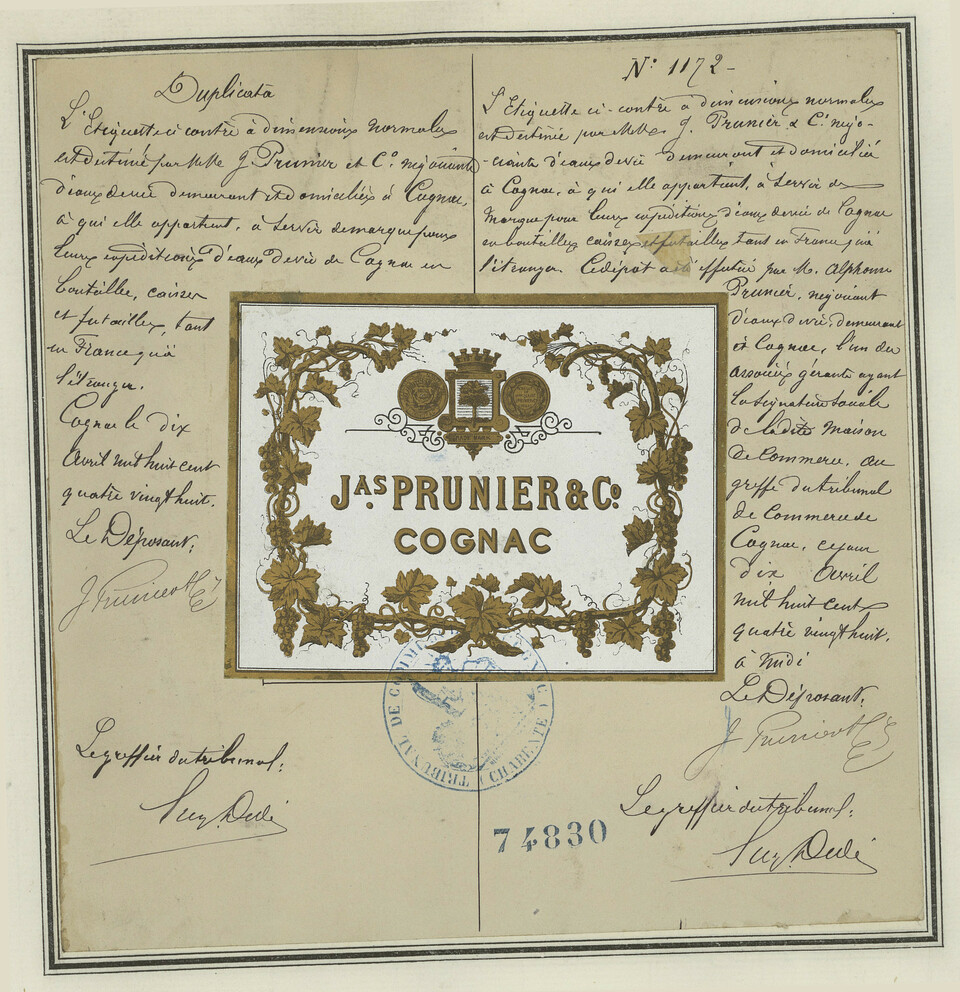 Duplicata
L'Etiquette ci-contre à dimensions normales
est destinée par MM. J. Prunier et Cº. négociants
d'eaux de vie demeurant et domiciliés à Cognac,
à qui elle appartient, à servir de marque pour
leurs expéditions d'eaux de vie de Cognac en
bouteilles, caisses
et futailles, tant
en France qu'à
l'étranger.
Cognac le dix
Avril mil huit cent
quatre vingt huit.
Le Déposant:
J Prunier & Cie
Le greffier du tribunal:
Nº 1172 -
L'Etiquette ci-contre à dimensions normales
est destinée par MM. J. Prunier & Cº. négo-
-ciants d'eaux de vie demeurant et domiciliés
à Cognac, à qui elle appartient, à servir de
marque pour leurs expéditions d'eaux de vie de Cognac
en bouteilles caisses et futailles tant en France qu'à
l'étranger. Ce dépôt a été effectué par M. Alphonse
Prunier, négociant
d'eaux de vie, demeurant
à Cognac, l'un des
associés gérants ayant
la signature sociale
de la dite Maison
de Commerce, au
greffe du tribunal
de Commerce de
Cognac, ce jour
dix Avril
mil huit cent
quatre vingt huit,
à midi
Le Déposant,
J Prunier & Cie
Le greffier du tribunal:
JAS PRUNIER & Cº
COGNAC
TRIBUNAL DE COMMERCE COGNAC (CHARENTE)
74830